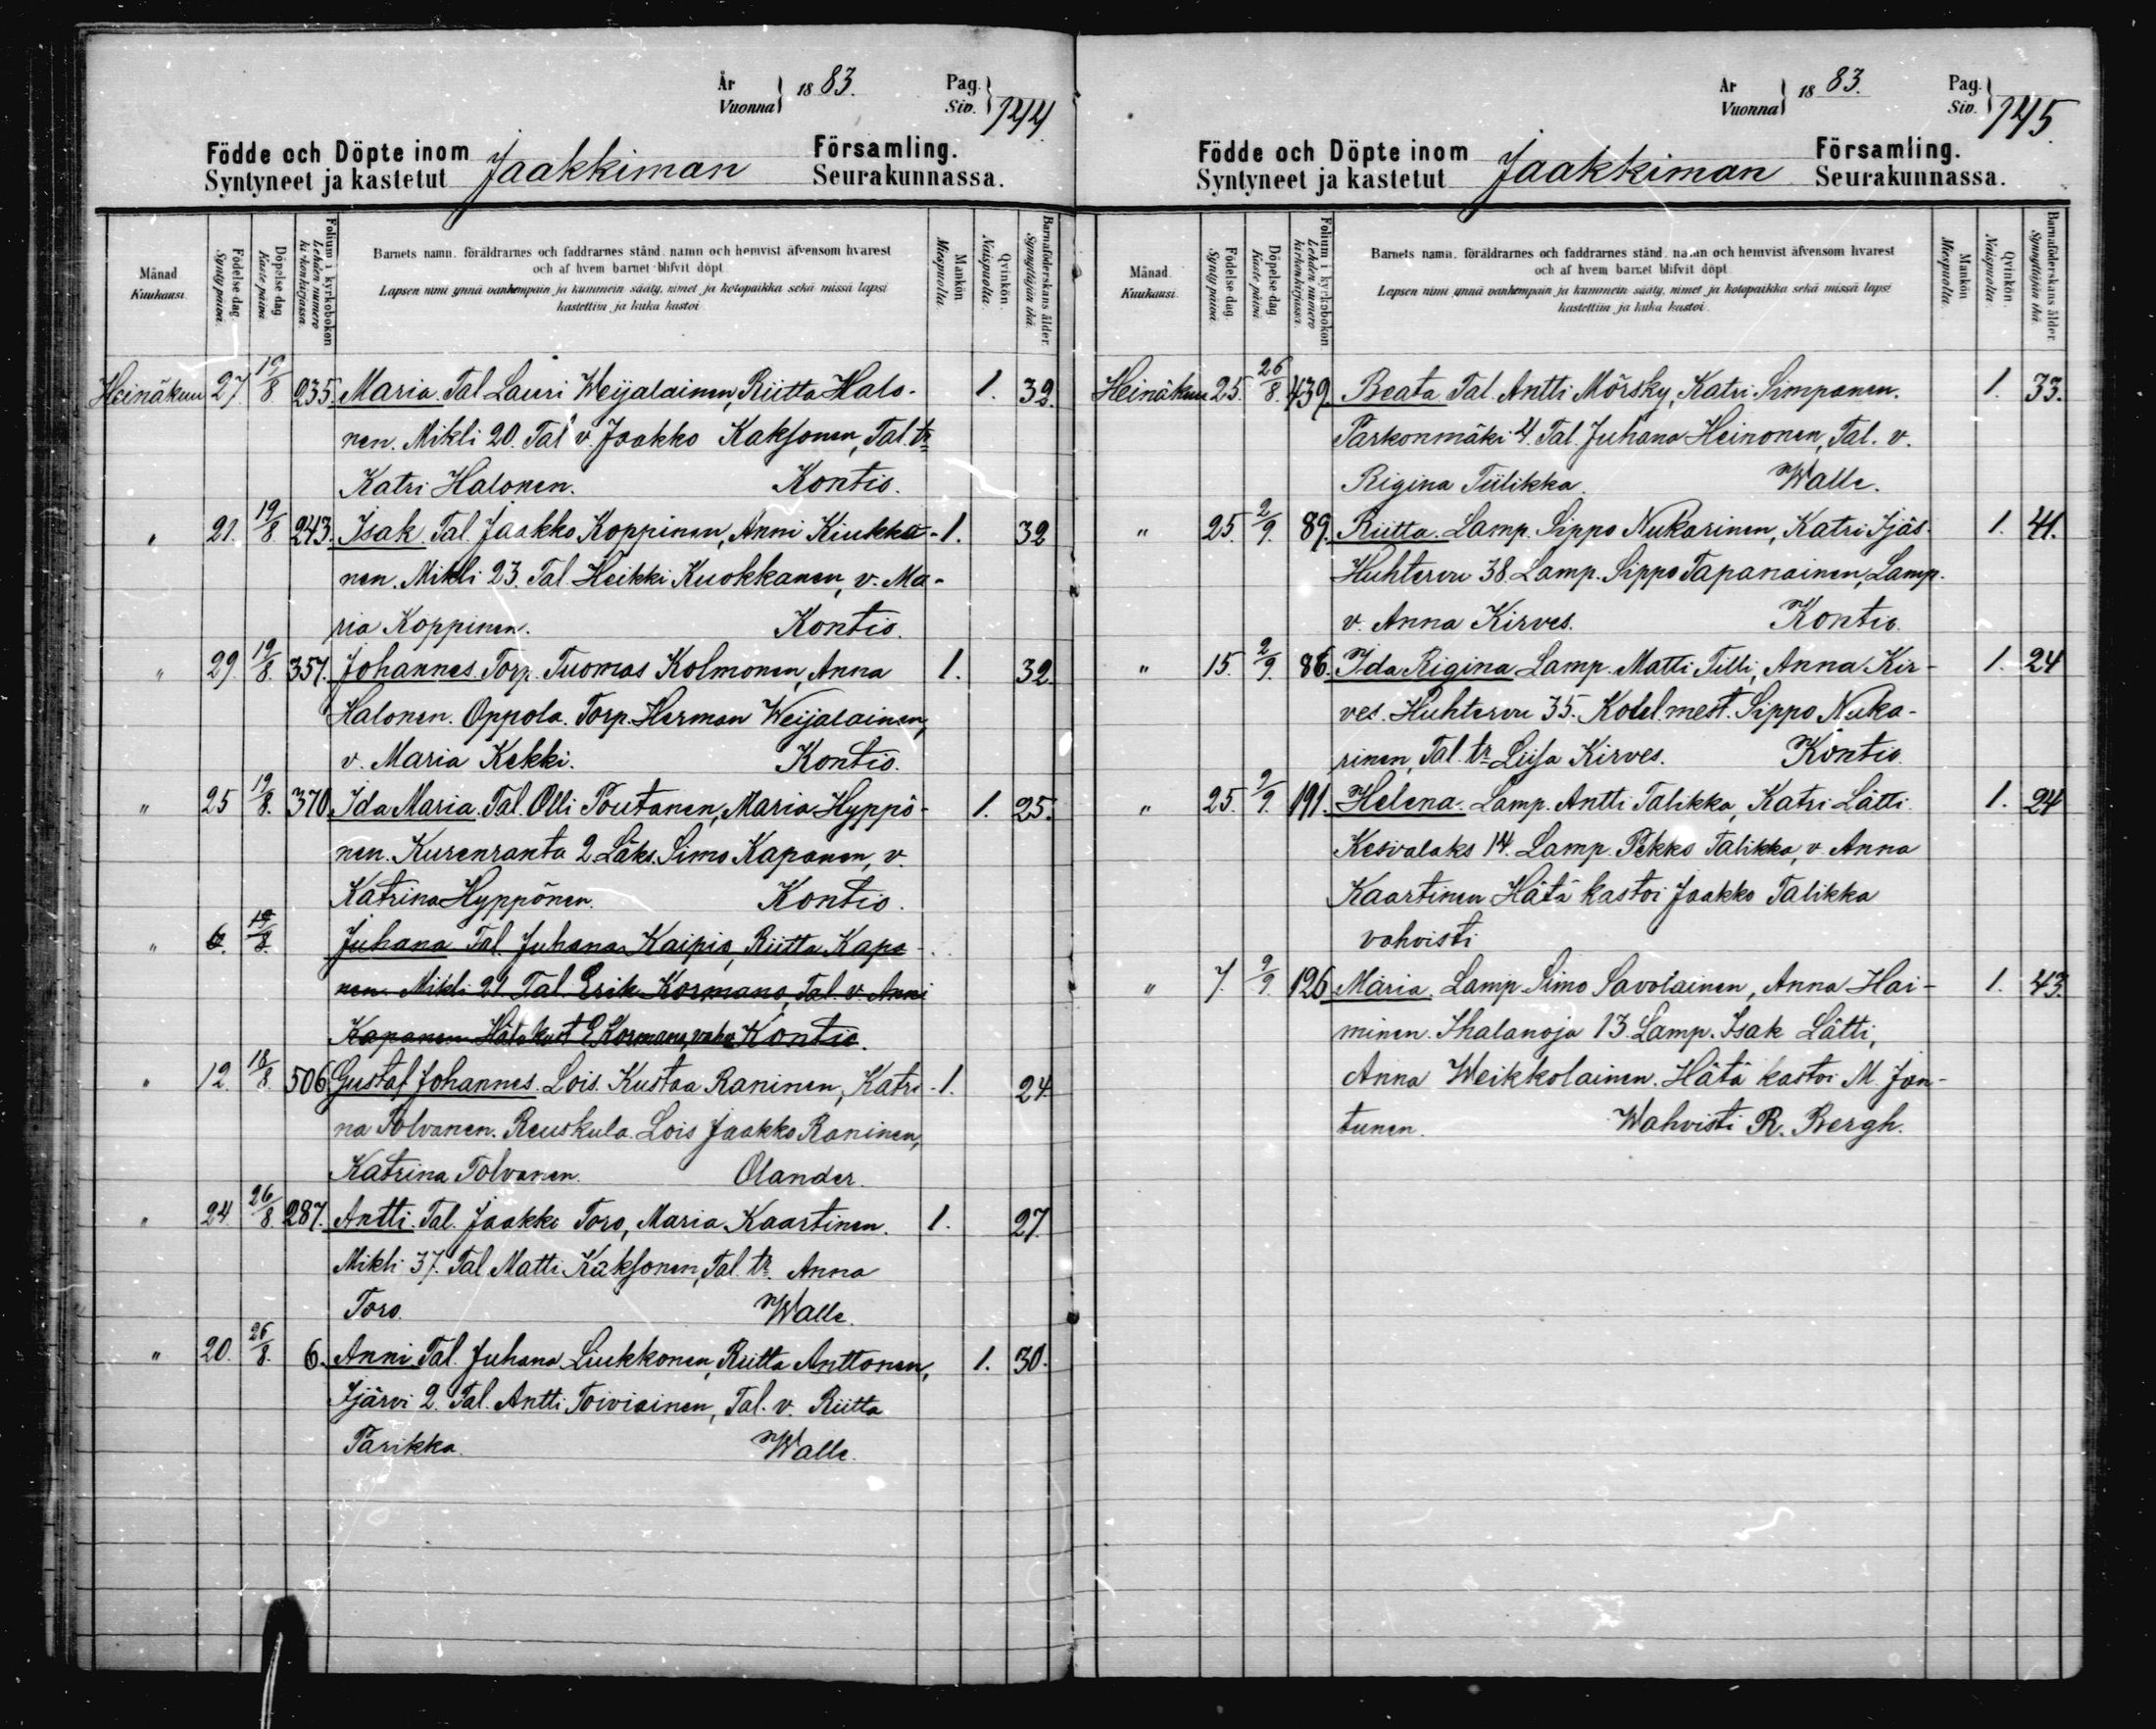 År
Vuonna 1883.
Pag.
Siv. 144
Födde och Döpte inom
Syntyneet ja kastetut Jaakkiman Församling.
Seurakunnassa.
Månad
Kuukausi.
Födelse dag.
Synty päivä.
Döpelse dag
Kaste päivä
Folium i kyrkobokon
Lehden numero kirkonkirjassa.
Barnets namn, föräldrarnes och faddrarnes stånd, namn och hemvist äfvensom hvarest
och af hvem barnet blifvit döpt.
Lapsen nimi ynnä vanhempain ja kummein sääty, nimet ja kotopaikka sekä missä lapsi
kastettiin ja kuka kastoi.
Mankön.
Miespuolia.
Qvinkön.
Naispuolia.
Barnaföderskans ålder.
Synnyttäjän ikä.
Heinäkuu 27. 19/8 235. Maria Tal Lauri Weijalainen, Riitta Halo- 1. 32.
nen. Mikli 20. Tal v. Jaakko Kaksonen, Tal. tr
Katri Halonen. Kontio.
" 21. 19/8 243. Isak. Tal. Jaakko Koppinen, Anni Kiukka- 1. 32
nen. Mikli 23. Tal. Heikki Kuokkanen, v. Ma-
ria Koppinen. Kontio.
" 29. 19/8. 357. Johannes. Torp. Tuomas Kolmonen, Anna 1. 32.
Halonen. Oppola. Torp. Herman Weijalainen,
v. Maria Kekki. Kontio.
" 25 19/8. 370. Ida Maria. Tal. Olli Poutanen, Maria Hyppö- 1. 25.
nen. Kurenranta 2. Läks. Simo Kapanen, v.
Katrina Hyppönen. Kontio.
" 6. 19/8. Juhana Tal. Juhana Kaipio, Riitta Kapa-
nen. Mikli 21 Tal. Erik Kormano, Tal. v. Anni
Kapanen Hätakast E Kormano, vahv Kontio.
" 12. 18/8. 506 Gustaf Johannes. Lois. Kustaa Raninen, Katri- 1. 24.
na Tolvanen. Reuskula. Lois Jaakko Raninen,
Katrina Tolvanen. Olander.
" 24. 26/8. 287. Antti. Tal. Jaakko Toro, Maria Kaartinen. 1. 27.
Mikli 37. Tal Matti Kaksonen, Tal. tr. Anna
Toro. Walle.
" 20. 26/8. 6. Anni Tal. Juhana Liukkonen, Riitta Anttonen, 1. 30.
Ijärvi 2. Tal. Antti Toiviainen, Tal. v. Riitta
Parikka. Walle.
År
Vuonna 1883.
Pag.
Siv. 145
Födde och Döpte inom
Syntyneet ja kastetut Jaakkiman Församling.
Seurakunnassa.
Månad.
Kuukausi.
Födelse dag.
Synty päivä.
Döpelse dag
Kaste päivä.
Folium i kyrkobokon
Lehden numero kirkonkirjassa.
Barnets namn, föräldrarnes och faddrarnes stånd, namn och hemvist äfvensom hvarest
och af hvem barnet blifvit döpt.
Lapsen nimi ynnä vanhempain ja kummein sääty, nimet ja kotopaikka sekä missä lapsi
kastettiin ja kuka kastoi.
Mankön
Miespuolia.
Qvinkön.
Naispuolia.
Barnaföderskans ålder.
Synnyttäjän ikä.
Heinäkuu 25. 26/8. 439. Beata Tal. Antti Mörsky, Katri Simpanen. 1. 33.
Parkonmäki 4. Tal. Juhana Heinonen, Tal. v.
Rigina Tiilikka. Walle.
" 25. 2/9. 89. Riitta. Lamp. Sippo Nukarinen, Katri Ijäs. 1. 41.
Huhtervu 38. Lamp. Sippo Tapanainen, Lamp.
v. Anna Kirves. Kontio.
" 15. 2/9. 86. Ida Rigina Lamp. Matti Tilli, Anna Kir- 1. 24
ves. Huhtervu 35. Kotel. mest. Sippo Nuka-
rinen, Tal. tr Liisa Kirves. Kontio.
" 25. 9/9. 191. Helena. Lamp. Antti Talikka, Katri Lätti. 1. 24
Kesvalaks 14. Lamp. Pekko Talikka, v. Anna
Kaartinen Hätä kastoi Jaakko Talikka
vahvisti
" 7. 9/9. 126 Maria. Lamp. Simo Savolainen, Anna Hai- 1. 43.
minen. Ihalanoja 13. Lamp. Isak Lätti,
Anna Weikkolainen. Hätä kastoi M. Jan-
tunen. Wahvisti R. Bergh.